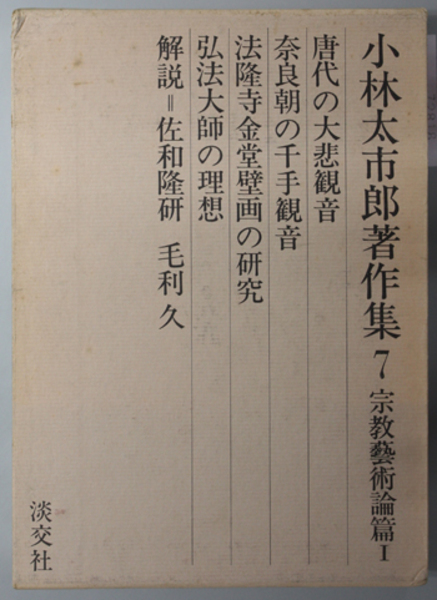 小林太市郎著作集 7 宗教藝術論篇 I
唐代の大悲観音
奈良朝の千手観音
法隆寺金堂壁画の研究
弘法大師の理想
解説＝佐和隆研 毛利久
淡交社